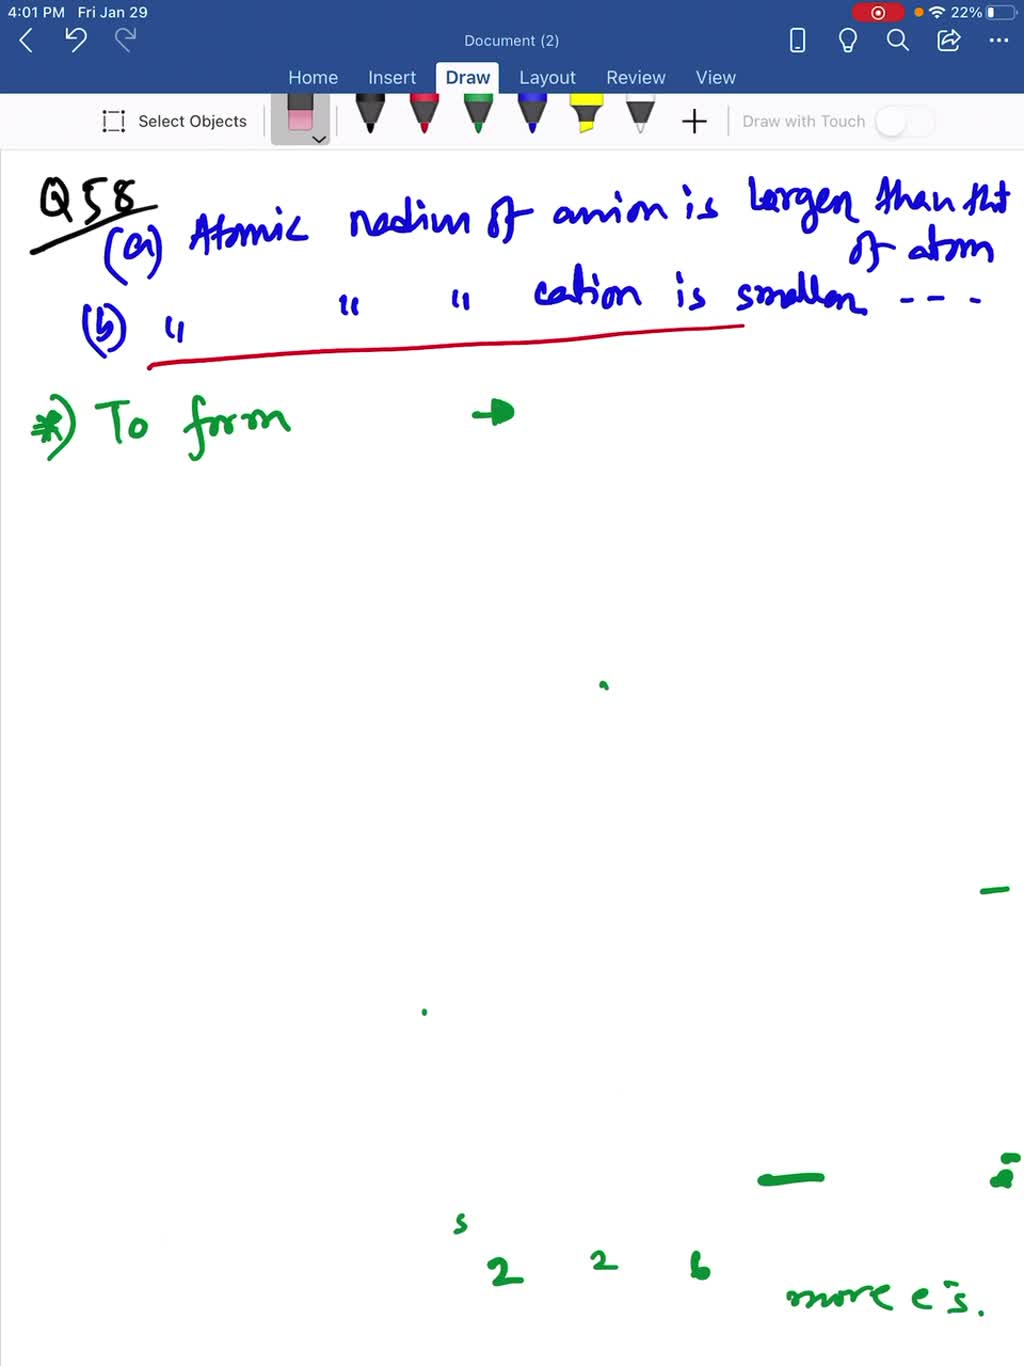 4:01 PM Fri Jan 29 22%
Document (2)
Home Insert Draw Layout Review View
Select Objects Draw with Touch
Q 58
(a) Atomic radius of anion is larger than that
of atom
(b) " " " cation is smaller ----
*) To form →
s
2 2 6
more e⁻s.